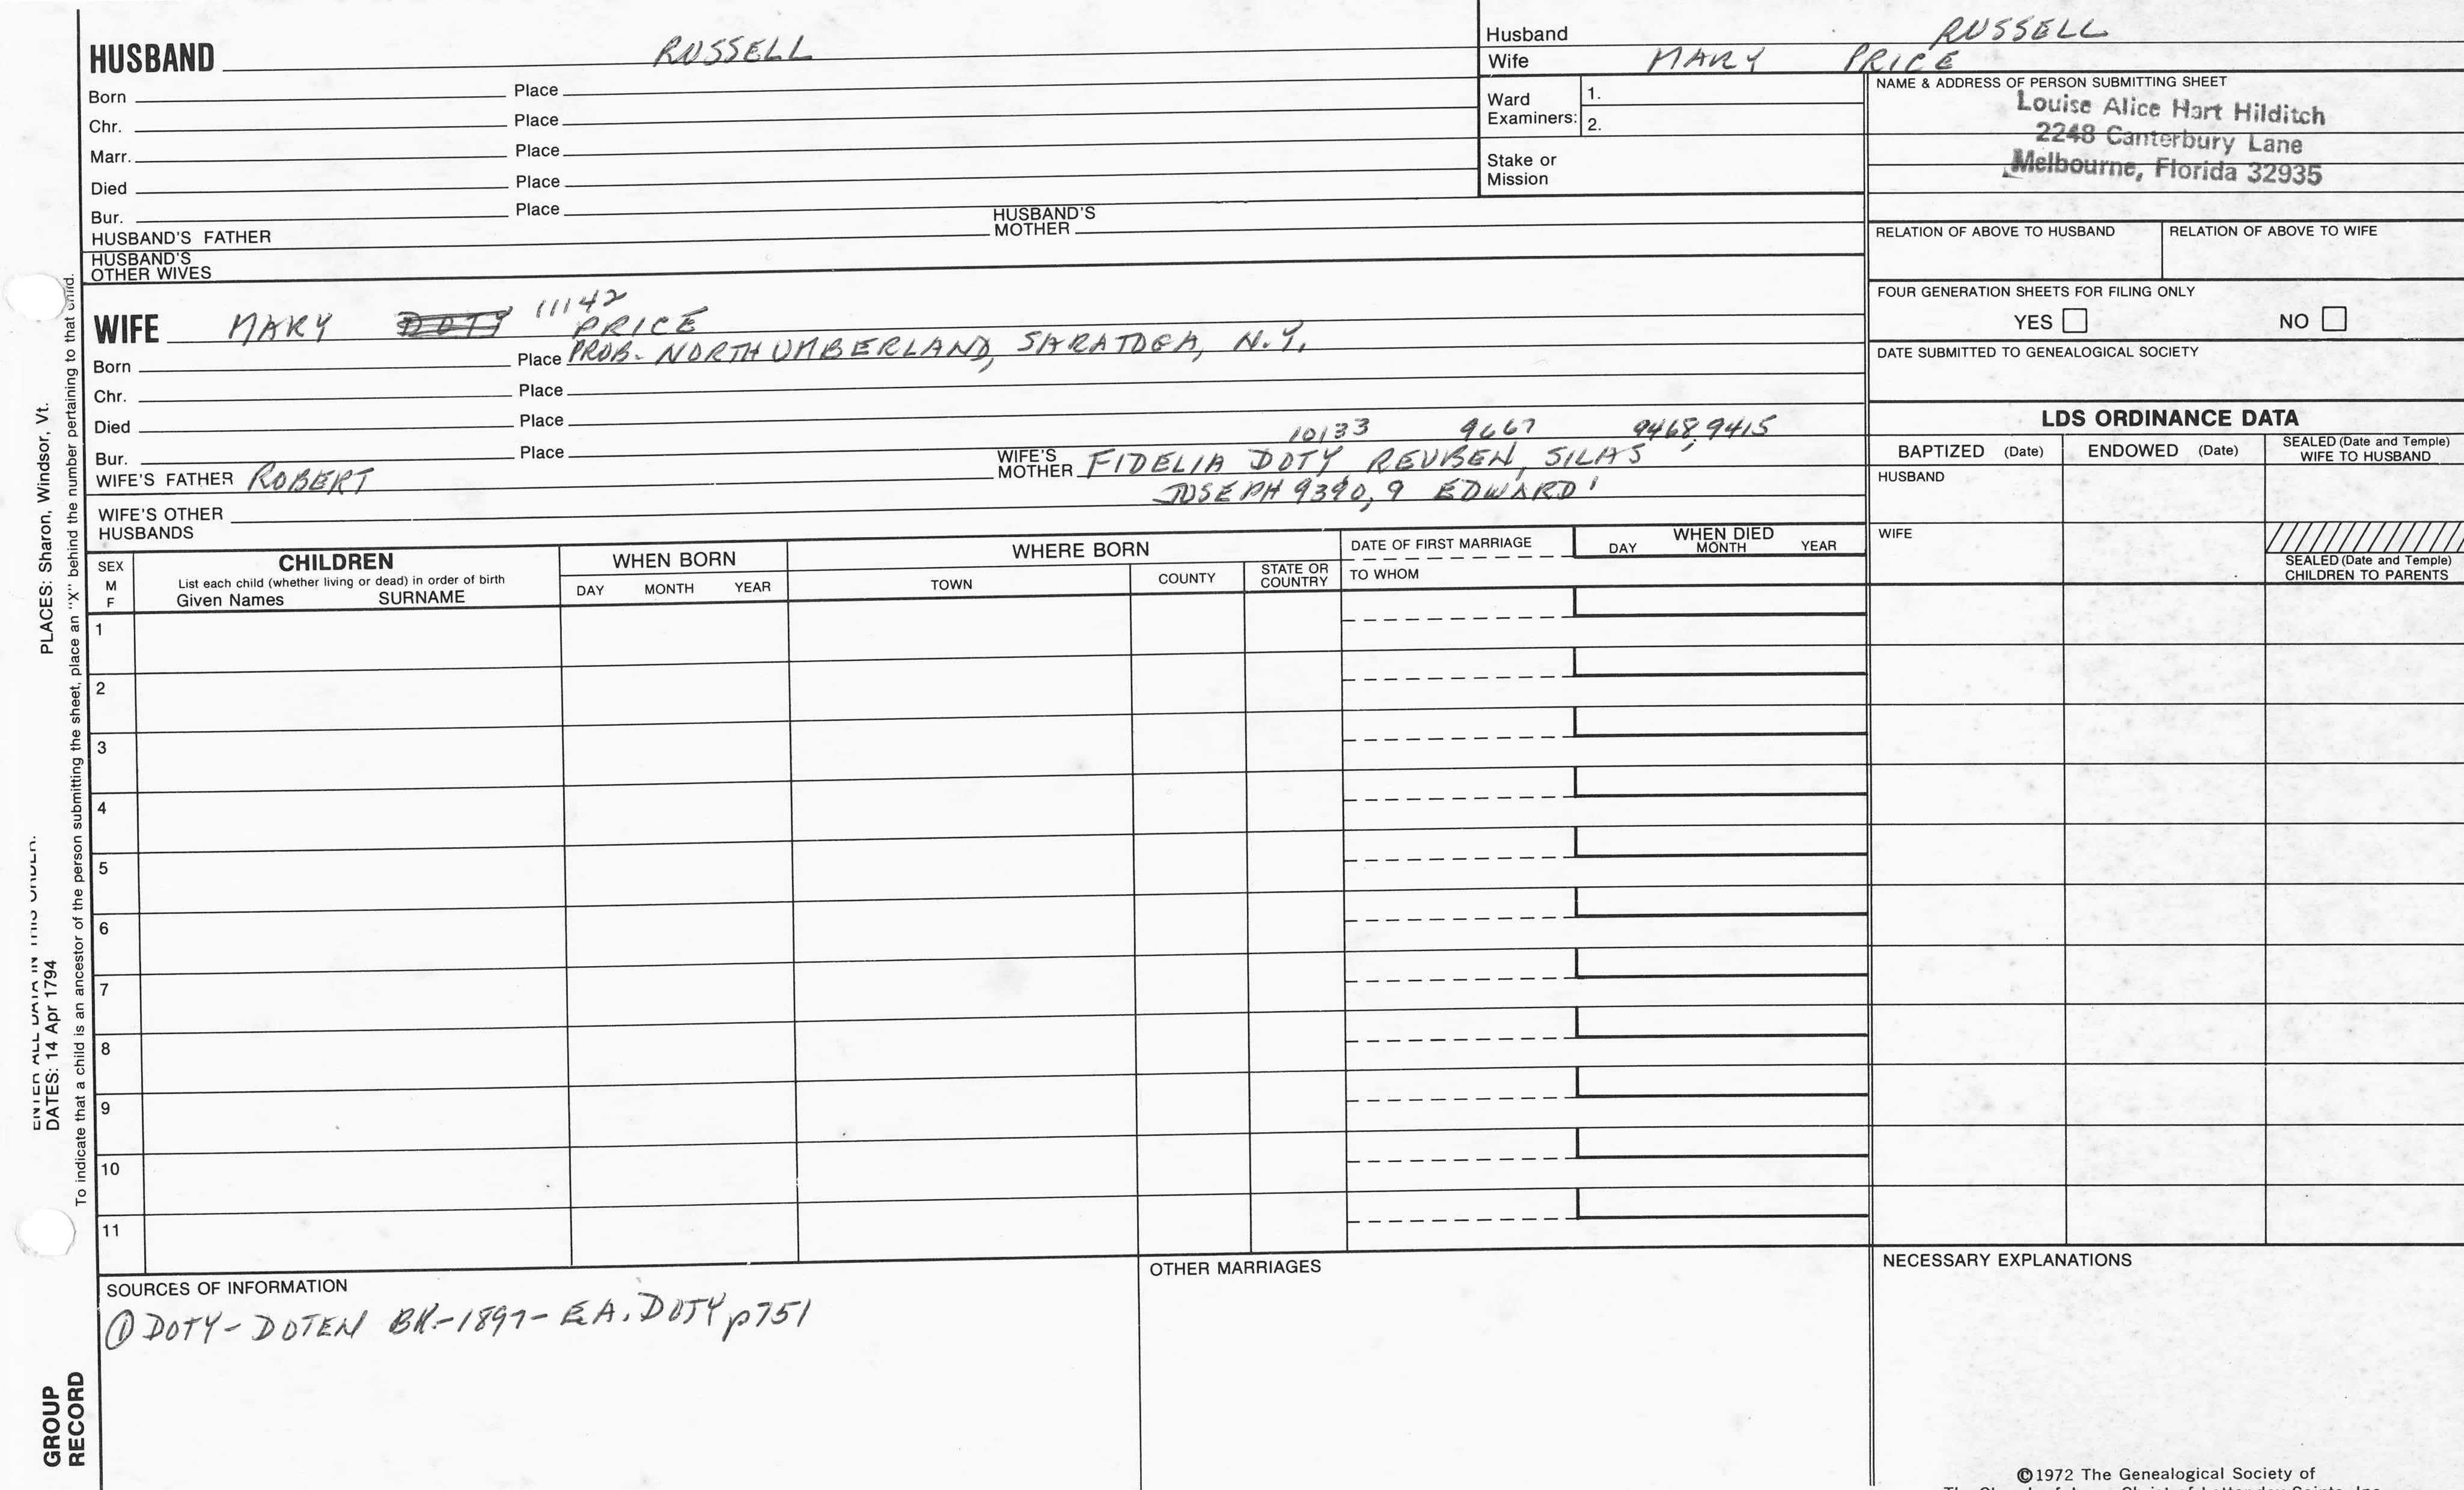 HUSBAND RUSSELL
Born Place
Chr. Place
Marr. Place
Died Place
Bur. Place
HUSBAND'S FATHER HUSBAND'S MOTHER
HUSBAND'S OTHER WIVES
Husband RUSSELL
Wife MARY PRICE
Ward Examiners: 1.
2.
Stake or Mission
NAME & ADDRESS OF PERSON SUBMITTING SHEET
Louise Alice Hart Hilditch
2248 Canterbury Lane
Melbourne, Florida 32935
RELATION OF ABOVE TO HUSBAND RELATION OF ABOVE TO WIFE
FOUR GENERATION SHEETS FOR FILING ONLY
YES NO
DATE SUBMITTED TO GENEALOGICAL SOCIETY
11142
WIFE MARY DOTY PRICE
Born Place PROB. NORTHUMBERLAND, SARATOGA, N.Y.
Chr. Place
Died Place
10133 9667 9468, 9415
Bur. Place
WIFE'S FATHER ROBERT WIFE'S MOTHER FIDELIA DOTY REUBEN, SILAS,
JOSEPH 9390, 9 EDWARD 1
WIFE'S OTHER HUSBANDS
LDS ORDINANCE DATA
BAPTIZED (Date) ENDOWED (Date) SEALED (Date and Temple) WIFE TO HUSBAND
HUSBAND
WIFE
SEALED (Date and Temple) CHILDREN TO PARENTS
SEX M F
CHILDREN
List each child (whether living or dead) in order of birth
Given Names SURNAME
WHEN BORN
DAY MONTH YEAR
WHERE BORN
TOWN COUNTY STATE OR COUNTRY
DATE OF FIRST MARRIAGE
TO WHOM
WHEN DIED
DAY MONTH YEAR
1
2
3
4
5
6
7
8
9
10
11
SOURCES OF INFORMATION
① DOTY-DOTEN BK-1897-E.A. DOTY p751
OTHER MARRIAGES
NECESSARY EXPLANATIONS
©1972 The Genealogical Society of
PLACES: Sharon, Windsor, Vt.
ENTER ALL DATA IN THIS ORDER:
DATES: 14 Apr 1794
To indicate that a child is an ancestor of the person submitting the sheet, place an "X" behind the number pertaining to that child.
GROUP
RECORD